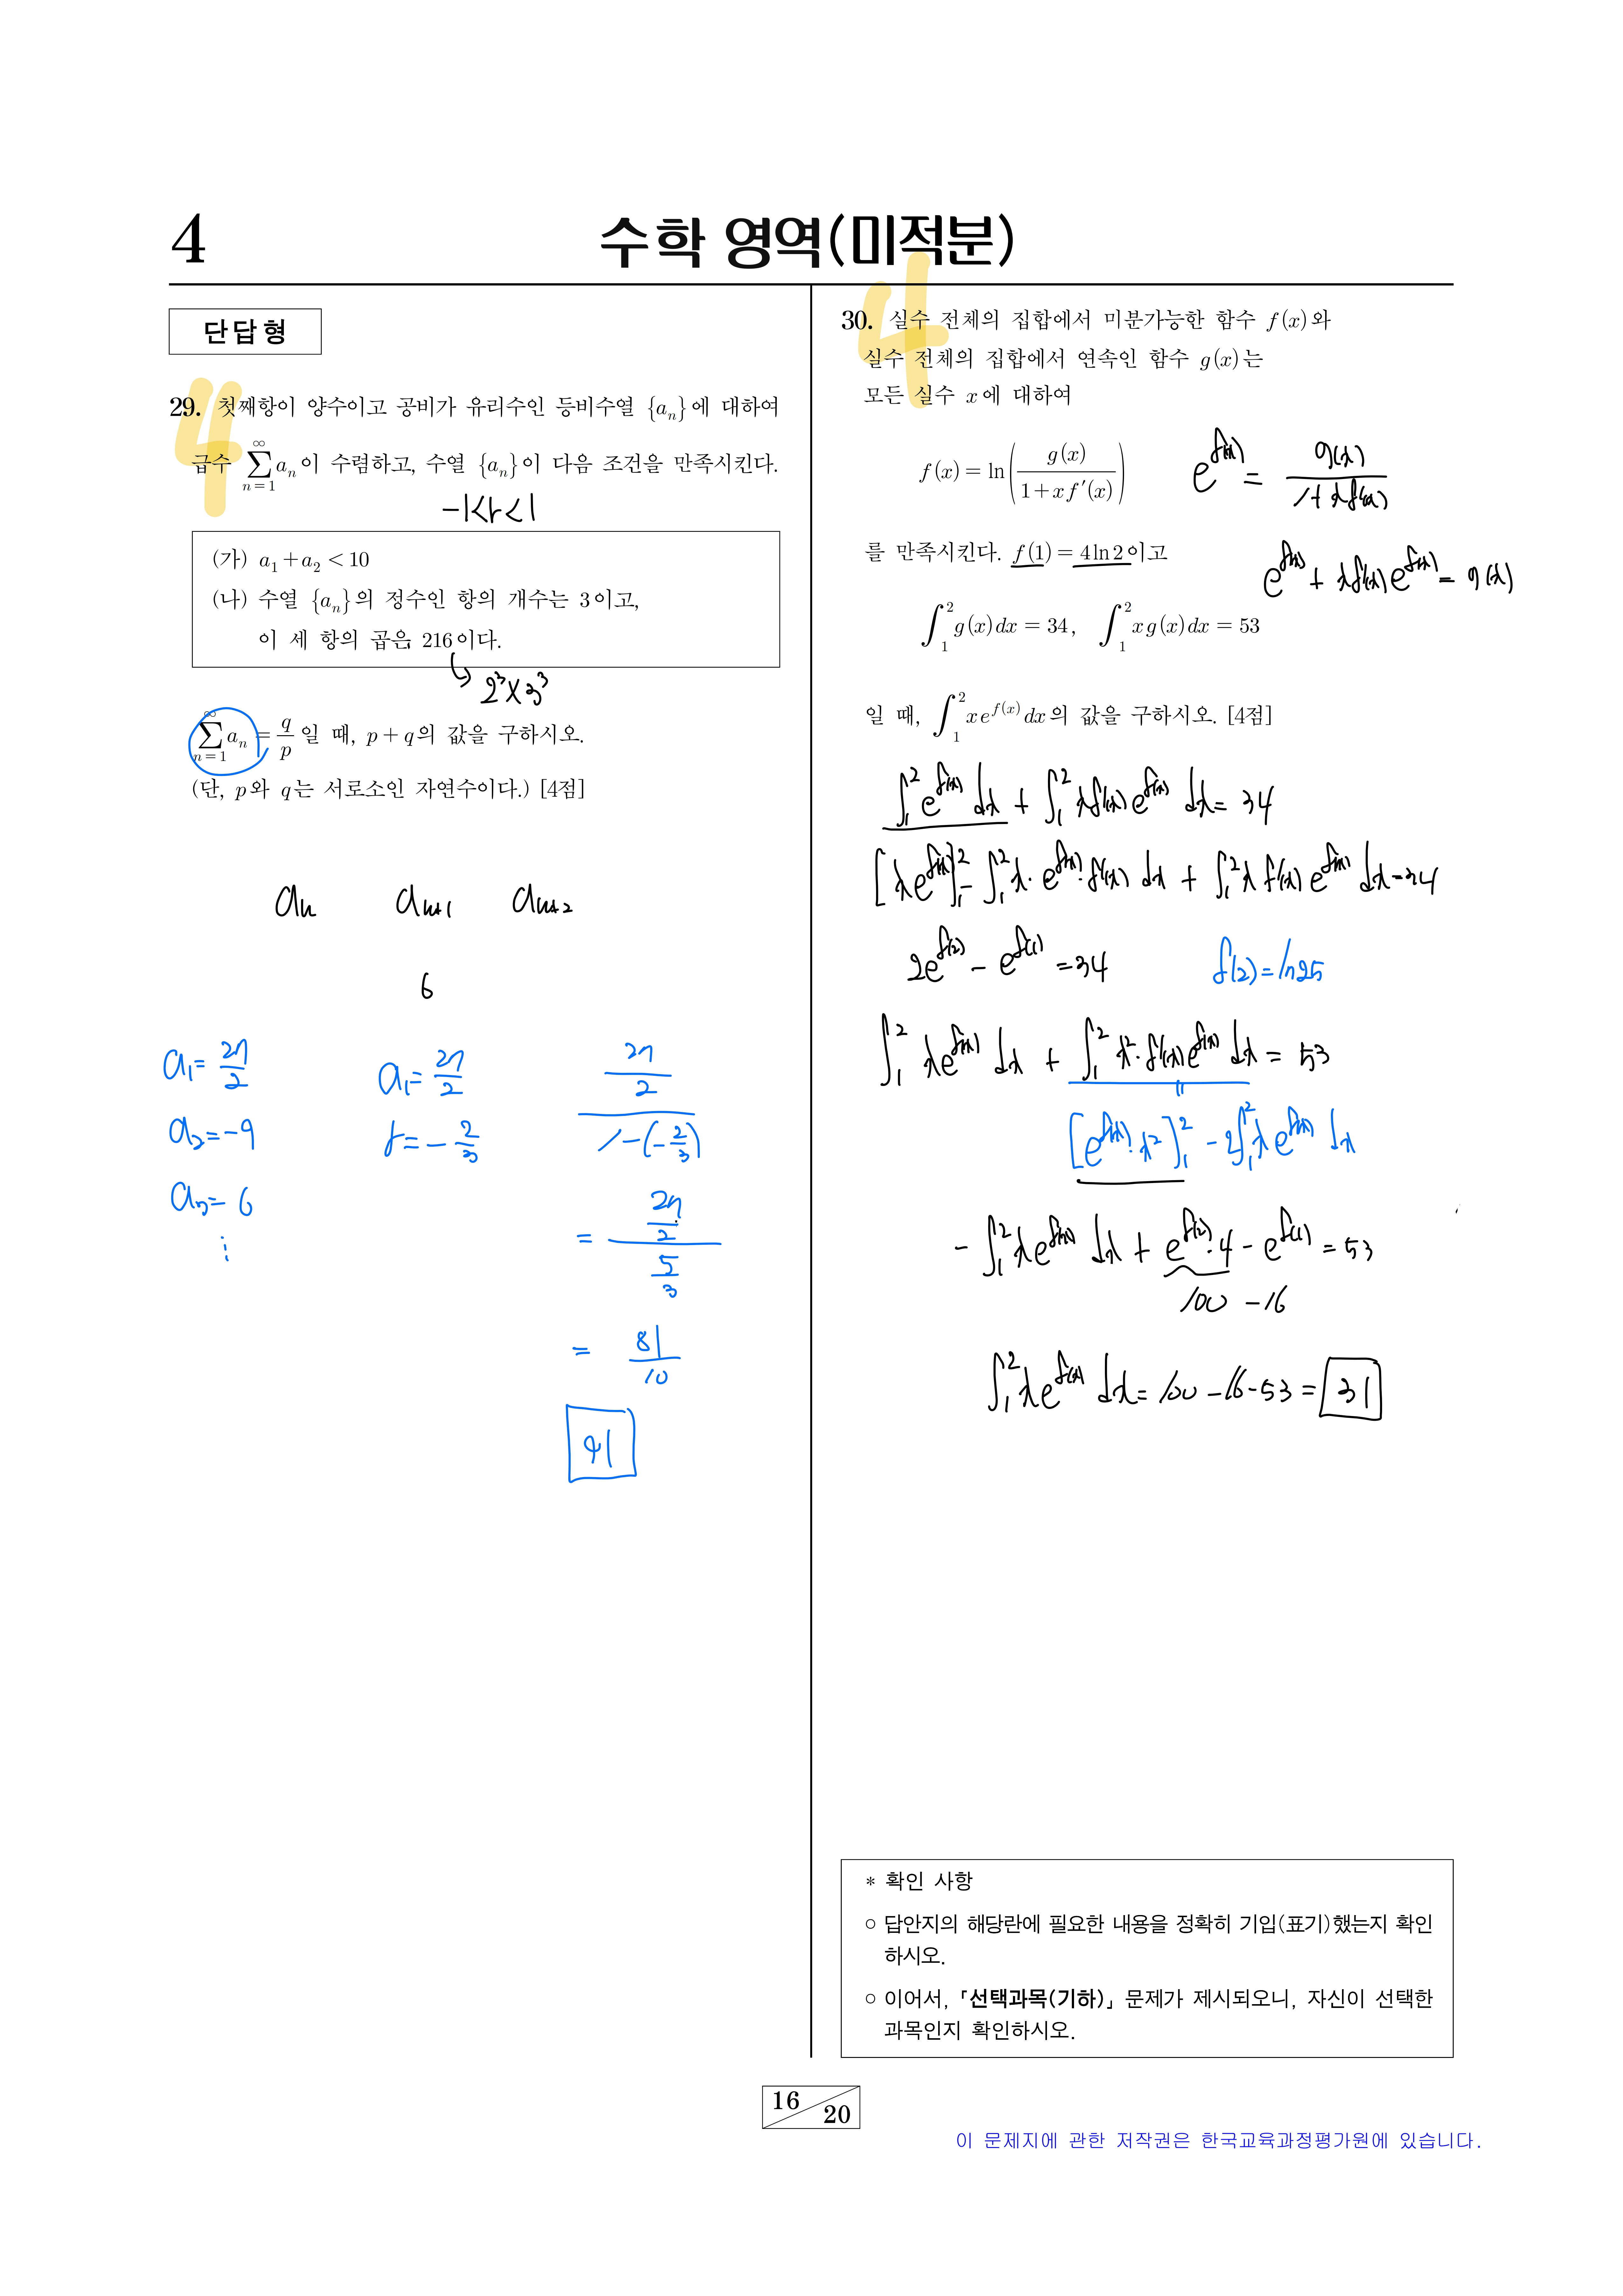 4
수학 영역(미적분)
단답형
4
29. 첫째항이 양수이고 공비가 유리수인 등비수열 {aₙ}에 대하여
급수 ∑_{n=1}^{∞} aₙ이 수렴하고, 수열 {aₙ}이 다음 조건을 만족시킨다.
-1<r<1
(가) a₁+a₂<10
(나) 수열 {aₙ}의 정수인 항의 개수는 3이고,
이 세 항의 곱은 216이다.
2³×3³
∑_{n=1}^{∞} aₙ = q/p 일 때, p+q의 값을 구하시오.
(단, p와 q는 서로소인 자연수이다.) [4점]
aₙ aₙ₊₁ aₙ₊₂
6
a₁=27/2
a₂=-9
a₃=6
⋮
a₁=27/2
r=-2/3
(27/2)/(1-(-2/3))
= (27/2)/(5/3)
= 81/10
91
4
30. 실수 전체의 집합에서 미분가능한 함수 f(x)와
실수 전체의 집합에서 연속인 함수 g(x)는
모든 실수 x에 대하여
f(x)=ln(g(x)/(1+xf′(x)))
e^{f(x)} = g(x)/(1+xf′(x))
를 만족시킨다. f(1)=4ln2이고
e^{f(x)}+xf′(x)e^{f(x)}=g(x)
∫₁² g(x)dx=34, ∫₁² xg(x)dx=53
일 때, ∫₁² xe^{f(x)}dx의 값을 구하시오. [4점]
∫₁² e^{f(x)} dx + ∫₁² xf′(x)e^{f(x)} dx=34
[xe^{f(x)}]₁² - ∫₁² x·e^{f(x)}·f′(x) dx + ∫₁² xf′(x)e^{f(x)} dx=34
2e^{f(2)} - e^{f(1)} =34
f(2)=ln25
∫₁² xe^{f(x)} dx + ∫₁² x²·f′(x)e^{f(x)} dx = 53
[e^{f(x)}·x²]₁² - 2∫₁² xe^{f(x)} dx
- ∫₁² xe^{f(x)} dx + e^{f(2)}·4 - e^{f(1)} = 53
100 -16
∫₁² xe^{f(x)} dx= 100-16-53 = 31
* 확인 사항
○ 답안지의 해당란에 필요한 내용을 정확히 기입(표기)했는지 확인
하시오.
○ 이어서, 「선택과목(기하)」 문제가 제시되오니, 자신이 선택한
과목인지 확인하시오.
16
20
이 문제지에 관한 저작권은 한국교육과정평가원에 있습니다.